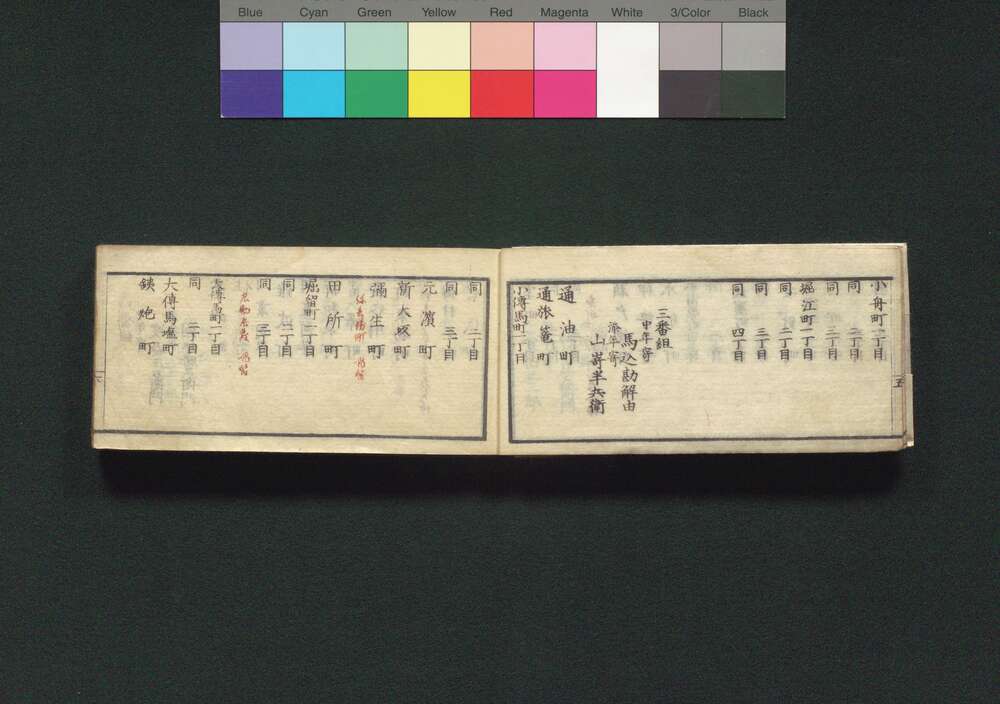 Blue Cyan Green Yellow Red Magenta White 3/Color Black
小舟町一丁目
同 二丁目
同 三丁目
堀江町一丁目
同 二丁目
同 三丁目
同 四丁目
三番組
中年寄
馬込勘解由
添年寄
山嵜半兵衛
通油町
通旅篭町
小傳馬町一丁目
五
同 二丁目
同 三丁目
元濱町
新大坂町
彌生町
田所町
堀留町一丁目
同 二丁目
同 三丁目
大傳馬町一丁目
同 二丁目
大傳馬塩町
鉄炮町